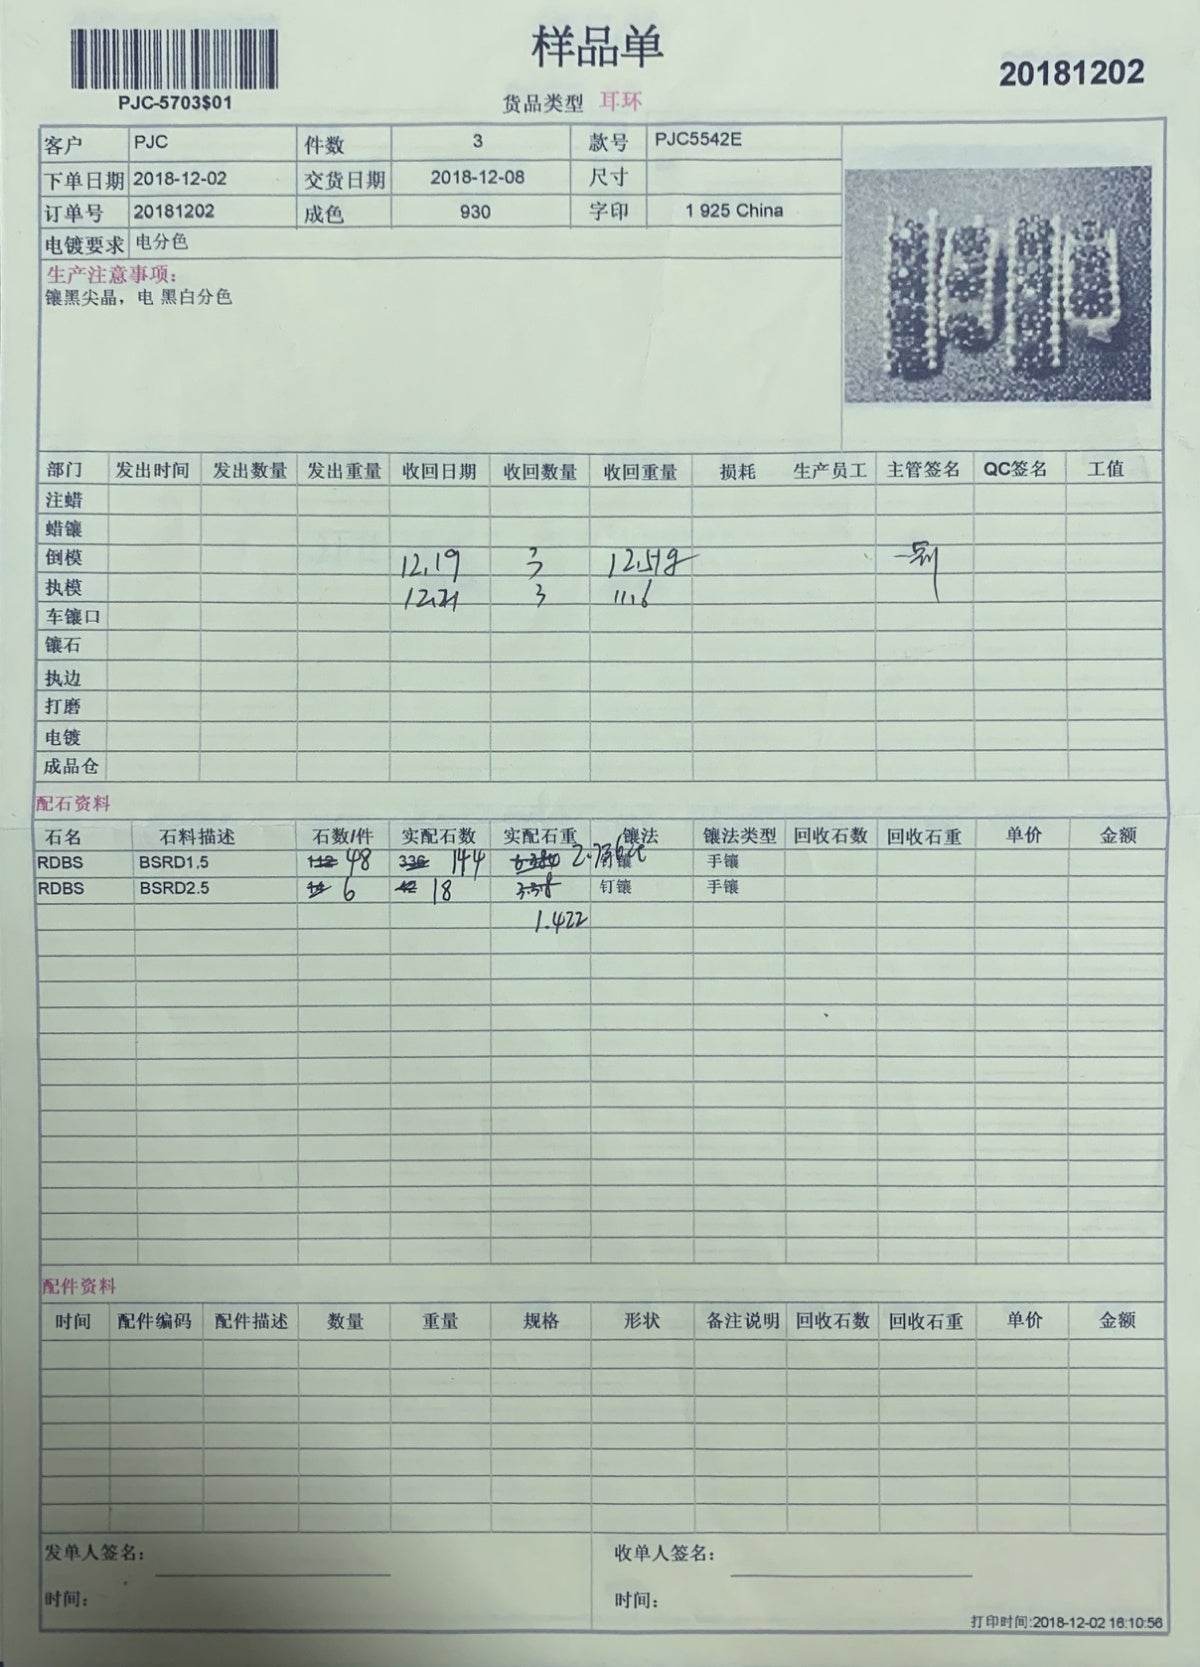 样品单
20181202
PJC-5703$01
货品类型 耳环
客户 PJC 件数 3 款号 PJC5542E
下单日期 2018-12-02 交货日期 2018-12-08 尺寸
订单号 20181202 成色 930 字印 1 925 China
电镀要求 电分色
生产注意事项：
镶黑尖晶，电 黑白分色
部门 发出时间 发出数量 发出重量 收回日期 收回数量 收回重量 损耗 生产员工 主管签名 QC签名 工值
注蜡
蜡镶
倒模 12.19 3 12.51g
执模 12.21 3 11.6
车镶口
镶石
执边
打磨
电镀
成品仓
配石资料
石名 石料描述 石数/件 实配石数 实配石重 镶法 镶法类型 回收石数 回收石重 单价 金额
RDBS BSRD1.5 112 48 336 144 钉镶 手镶
RDBS BSRD2.5 14 6 42 18 钉镶 手镶
1.422
配件资料
时间 配件编码 配件描述 数量 重量 规格 形状 备注说明 回收石数 回收石重 单价 金额
发单人签名： 收单人签名：
时间： 时间：
打印时间:2018-12-02 16:10:56